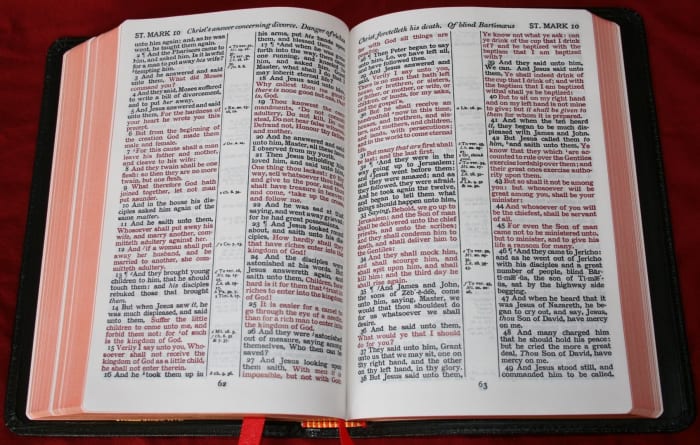 ST. MARK 10
Christ's answer concerning divorce.
unto him again: and, as he was
wont, he taught them again.
and asked him, Is it lawful
for a man to put away his wife?
tempting him.
3 And he answered and said
unto them, What did Moses
command you?
4 And they said, Moses suffered
to write a bill of divorcement,
and to put her away.
5 And Jesus answered and said
unto them, For the hardness of
your heart he wrote you this
precept.
6 But from the beginning of
the creation God made them
male and female.
7 For this cause shall a man
leave his father and mother,
and cleave to his wife;
8 And they twain shall be one
flesh: so then they are no more
twain, but one flesh.
9 What therefore God hath
joined together, let not man
put asunder.
10 And in the house his dis-
ciples asked him again of the
same matter.
11 And he saith unto them,
Whosoever shall put away his
wife, and marry another, com-
mitteth adultery against her.
12 And if a woman shall put
away her husband, and be
married to another, she com-
mitteth adultery.
13 ¶ And they brought young
children to him, that he should
touch them: and his disciples
rebuked those that brought
them.
14 But when Jesus saw it, he
was much displeased, and said
unto them, Suffer the little
children to come unto me, and
forbid them not: for of such is
the kingdom of God.
15 Verily I say unto you, Who-
soever shall not receive the
kingdom of God as a little child,
he shall not enter therein.
16 And he took them up in
his arms, put his hands upon
them, and blessed them.
17 ¶ And when he was gone
running, and
and asked him, Good
Master, what shall I do that I
may inherit eternal life?
18 And Jesus said unto him,
Why callest thou me good?
there is none good but one, that
is, God.
19 Thou knowest the com-
mandments, Do not commit
adultery, Do not kill, Do not
steal, Do not bear false witness,
Defraud not, Honour thy father
and mother.
20 And he answered and said
unto him, Master, all these have
I observed from my youth.
21 Then Jesus beholding him
loved him, and said unto him,
One thing thou lackest: go thy
way, sell whatsoever thou hast,
and give to the poor, and thou
shalt have treasure in heaven:
and come, take up the cross,
and follow me.
22 And he was sad at that
saying, and went away grieved:
for he had great possessions.
23 ¶ And Jesus looked round
about, and saith unto his dis-
ciples, How hardly shall they
that have riches enter into the
kingdom of God!
24 And the disciples were
astonished at his words. But
Jesus answereth again, and
saith unto them, Children, how
hard is it for them that trust in
riches to enter into the kingdom
of God!
25 It is easier for a camel to
go through the eye of a needle,
than for a rich man to enter into
the kingdom of God.
26 And they were astonished
out of measure, saying among
themselves, Who then can be
saved?
27 And Jesus looking upon
them saith, With men it is
impossible, but not with God:
62
Christ foretelleth his death. Of blind Bartimæus
ST. MARK 10
for with God all things are
possible.
28 ¶ Then Peter began to say
unto him, Lo, we have left all,
and have followed thee.
29 And Jesus answered and
said, Verily I say unto you,
There is no man that hath left
house, or brethren, or sisters,
or father, or mother, or wife, or
children, or lands, for my sake,
and the gospel's,
30 But he shall receive an
hundredfold now in this time,
houses, and brethren, and sis-
ters, and mothers, and children,
and lands, with persecutions;
and in the world to come eternal
life.
31 But many that are first shall
be last; and the last first.
32 ¶ And they were in the
way going up to Jerusalem;
and Jesus went before them:
and they were amazed; and as
they followed, they were afraid.
And he took again the twelve,
and began to tell them what
things should happen unto him,
33 Saying, Behold, we go up to
Jerusalem; and the Son of man
shall be delivered unto the chief
priests, and unto the scribes;
and they shall condemn him to
death, and shall deliver him to
the Gentiles:
34 And they shall mock him,
and shall scourge him, and
shall spit upon him, and shall
kill him: and the third day he
shall rise again.
35 ¶ And James and John,
the sons of Zeb-e-dee, come
unto him, saying, Master, we
would that thou shouldest do
for us whatsoever we shall
desire.
36 And he said unto them,
What would ye that I should
do for you?
37 They said unto him, Grant
unto us that we may sit, one on
thy right hand, and the other
on thy left hand, in thy glory.
38 But Jesus said unto them,
Ye know not what ye ask: can
ye drink of the cup that I drink
of? and be baptized with the
baptism that I am baptized
with?
39 And they said unto him,
We can. And Jesus said unto
them, Ye shall indeed drink of
the cup that I drink of; and with
the baptism that I am baptized
withal shall ye be baptized:
40 But to sit on my right hand
and on my left hand is not mine
to give; but it shall be given to
them for whom it is prepared.
41 And when the ten heard
it, they began to be much dis-
pleased with James and John.
42 But Jesus called them to
him, and saith unto them, Ye
know that they which are ac-
counted to rule over the Gentiles
exercise lordship over them; and
their great ones exercise autho-
rity upon them.
43 But so shall it not be among
you: but whosoever will be
great among you, shall be your
minister:
44 And whosoever of you will
be the chiefest, shall be servant
of all.
45 For even the Son of man
came not to be ministered unto,
but to minister, and to give his
life a ransom for many.
46 ¶ And they came to Jericho:
and as he went out of Jericho
with his disciples and a great
number of people, blind Bar-
ti-mæ-us, the son of Ti-mæ-
us, sat by the highway side
begging.
47 And when he heard that it
was Jesus of Nazareth, he be-
gan to cry out, and say, Jesus,
thou Son of David, have mercy
on me.
48 And many charged him
that he should hold his peace:
but he cried the more a great
deal, Thou Son of David, have
mercy on me.
49 And Jesus stood still, and
commanded him to be called.
63